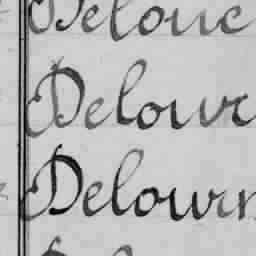 Delouc
Delour
Delourn